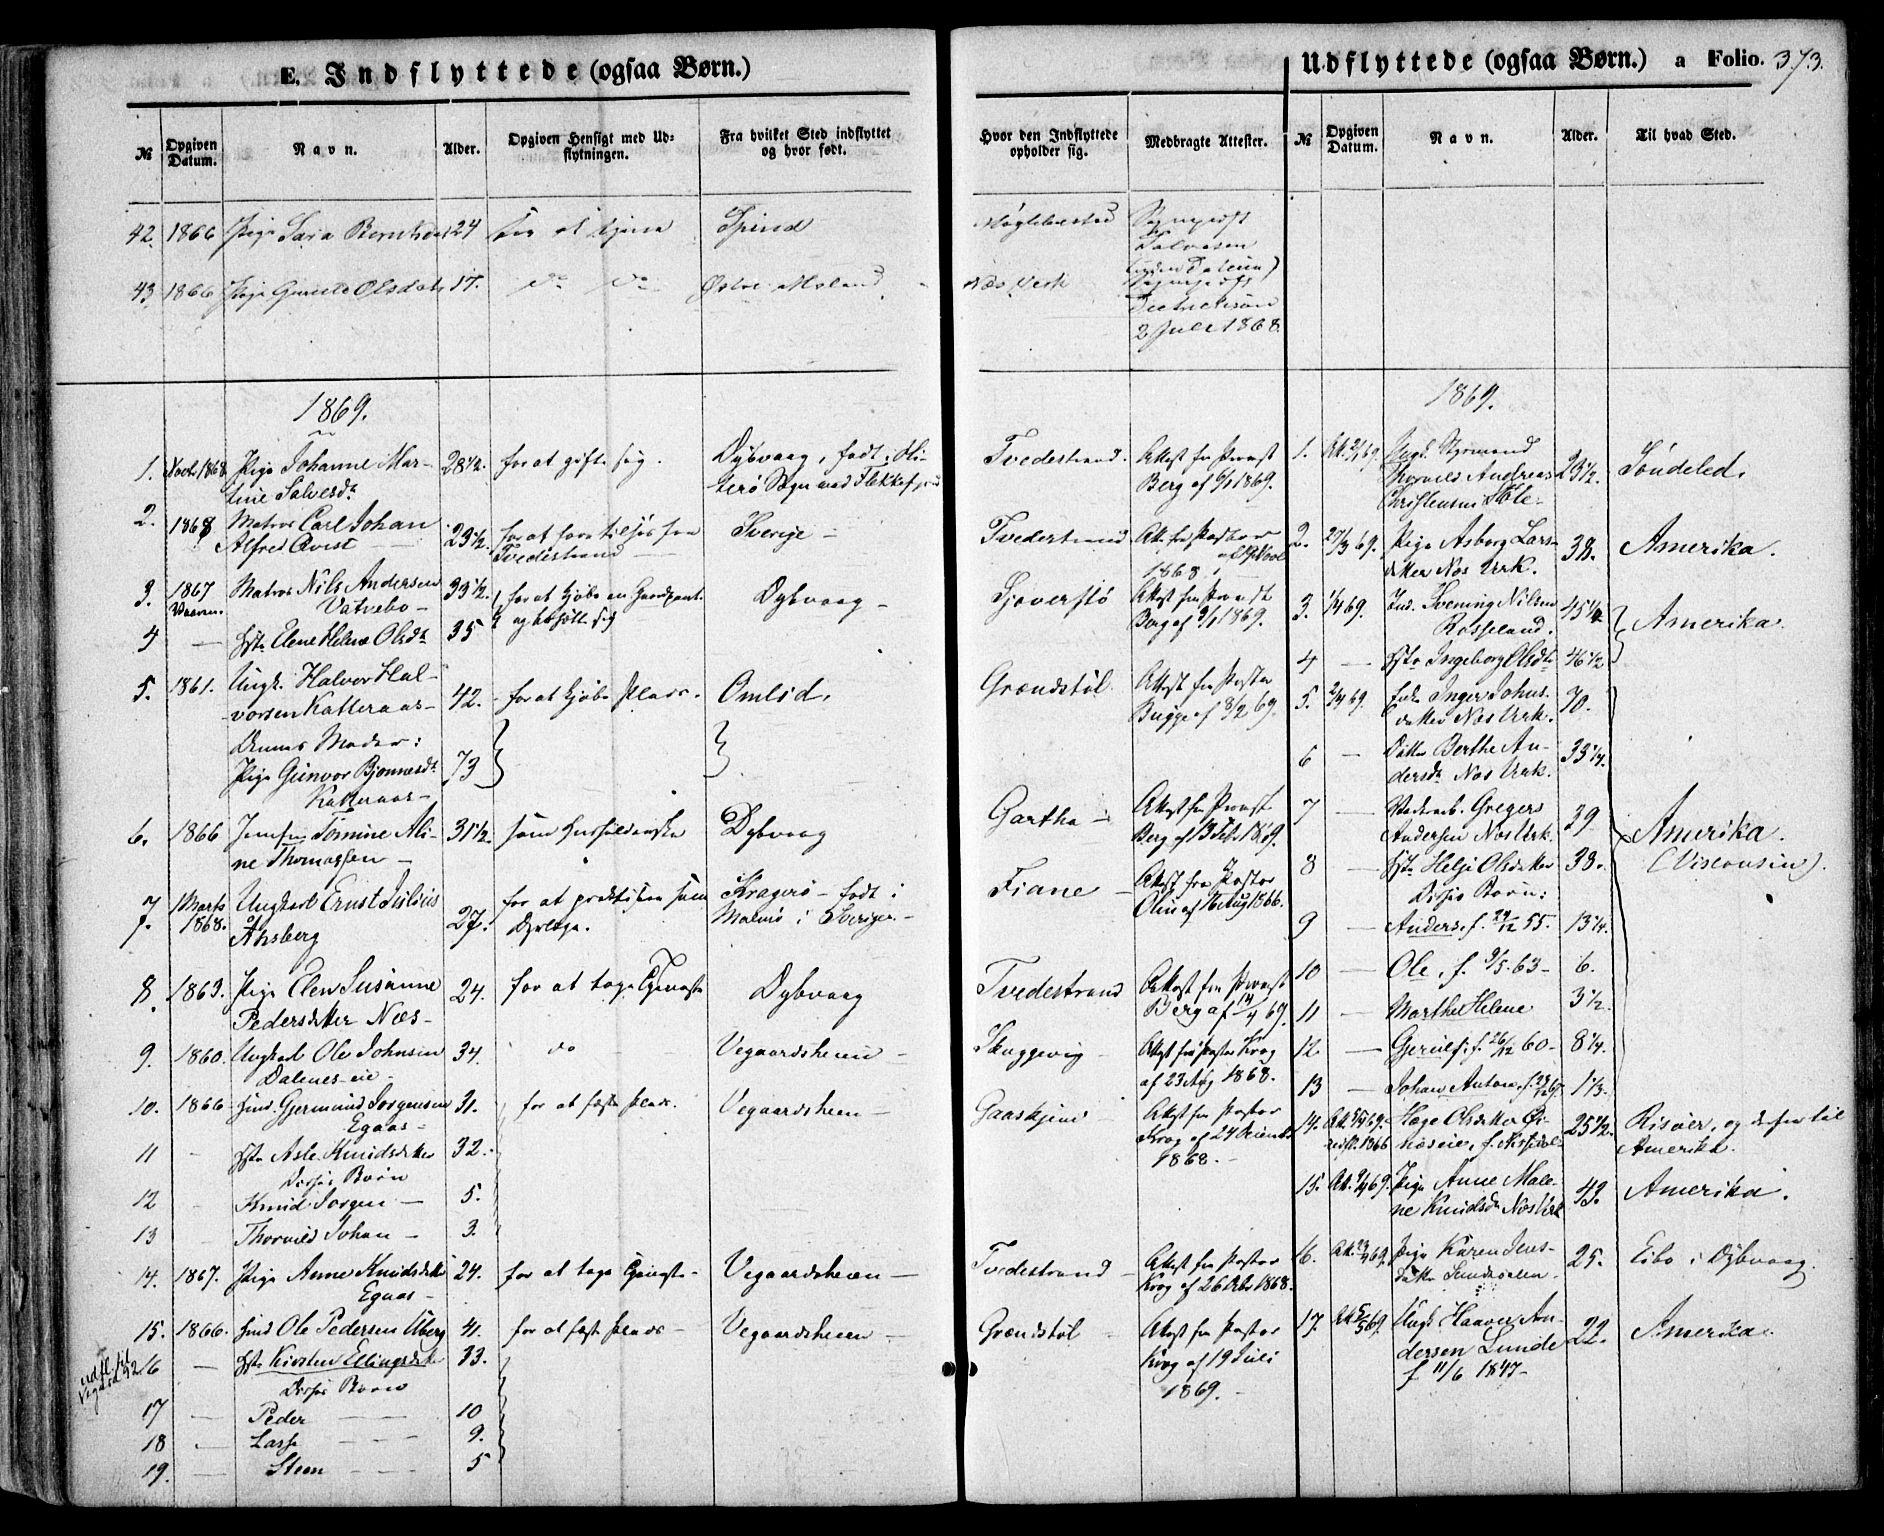 E. Indflyttede (ogsaa Børn.)
№ Opgiven Datum. Navn. Alder. Opgiven Hensigt med Udflytningen. Fra hvilket Sted indflyttet og hvor født. Hvor den Indflyttede opholder sig. Medbragte Attester.
42. 1866 Pige Sara 24 for at tjene Spind
43 1866 Pige Gunild Olsdat. 17. do do Østre Moland Næs Verk
2 Juli 1868.
1869.
1. Novbr. 1868 Pige Johanne Mar-
tine Salvesdr. 28 1/2. for at gifte sig. Dybvaag, født i Hi-
terø Sogn ved Flekkefjord Tvedestrand. Attest fra Provst
Berg af 6/1 1869.
2. 1868 Matros Carl Johan
Alfred Qvist 23 1/2. for at fare tilsjøs fra
Tvedestrand Sverige Tvedestrand
1868
3. 1867 Matros Nils Andersen
Vatnebo 33 1/2. for at kjøbe en Gaardpart
og bosætte sig Dybvaag Sjøverstø Attest fra Provst
Berg af 9/1 1869.
4 — Hstr. Elene Helene Olsdtr 35
5. 1861. Ungk. Halvor Hal-
vorsen Katteraas 42. for at kjøbe Plads. Omlid. Grændstøl. Attest fra Pastor
Bugge af 8/2 69.
Dennes Moder:
Pige Gunvor Bjonnesdr.
Katteraas 73
6. 1866 Jomfru Tomine Ali-
ne Thomassen 31 1/2. som Husholderske Dybvaag Gartha Attest fra Provst
Berg af 13 Feb. 1869.
7. 1 Marts 1868. Ungkarl Ernst Julius
Åhsberg 27. for at praktisere som
Dyrlæge. Kragerø - født i
Malmø i Sverige. Fiane Attest fra Pastor
Olin af 16 Aug 1866.
8. 1863. Pige Elen Susanne
Pedersdatter Næs 24. for at tage Tjeneste Dybvaag Tvedestrand Attest fra Provst
Berg af 14/4 69.
9. 1860. Ungkarl Ole Johnsen
Dalenes-eie 34. do Vegaardsheien Skuggevig Attest fra Pastor Krog
af 23 Aug 1868.
10. 1866 Jnd. Gjermund Jorgensen
Egaas 31. for at fæste Plads. Vegaardsheien Gaaskjend Attest fra Pastor
Krog af 24
1868.
11 - Hstr. Asle Knudsdatter 32.
Disses Børn
12 - Knud Jorgen 5.
13 - Thorvild Johan 3.
14. 1867. Pige Anne Knudsdatter
Egaas 24. for at tage Tjeneste Vegaardsheien Tvedestrand Attest fra Pastor
Krog af 26 Octbr 1868.
15. 1866. Jnd Ole Pedersen Uberg 41. for at fæste Plads Vegaardsheien Grændstøl Attest fra Pastor
Krog af 19 Juli
1869.
16 — Hstr. Kirsten Ellingsdatter 33.
udfl. til
Vegård 92
Disses Børn
17 — Peder 10
18 — Lasse 9.
19. — Steen 5
Udflyttede (ogsaa Børn.) a Folio. 373.
№ Opgiven Datum. Navn. Alder. Til hvad Sted.
1869.
1. Att. 2/1 69. Ungk. Styrmand
Thorvild Andreas
Christensen 23 1/2. Søndeled.
2. 27/3 69. Pige Asborg Lars-
datter Næs Værk. 38. Amerika.
3. 1/4 69. Ind. Svening Nilsen
Rosseland. 45 1/4 Amerika.
4 — Hstr. Ingeborg Olsdtr 46 1/2
5. 2/4 69. Enke Inger Johns-
datter Næs Værk. 70.
6 — Datter Berthe An-
dersdr Næs Værk. 33 1/4.
7 — Gregers
Andersen Næs Værk. 39 Amerika.
(Visconsin).
8 — Hstr. Helje Olsdatter 38.
Disses Børn:
9 — Anders f. 24/12 55. 13 1/4.
10 — Ole, f. 9/5 63 6.
11 — Marthe Helene 3 1/2
12 — f. 26/12 60 8 1/4.
13 — Johan Anton, 1 1/3.
14. Hæge Olsdatter 25 1/2. Risøer, og derfra til
Amerika.
15. Att. 9/4 69. Pige Anne Male-
ne Knudsdr Næs Værk 42. Amerika.
16. Att. 23/4 69. Pige Karen Jens-
datter 25. Eibo i Dybvaag.
17. Att. 5/5 69. Ungk. Haaver An-
dersen Lunde
f 11/6 1847 22. Amerika.